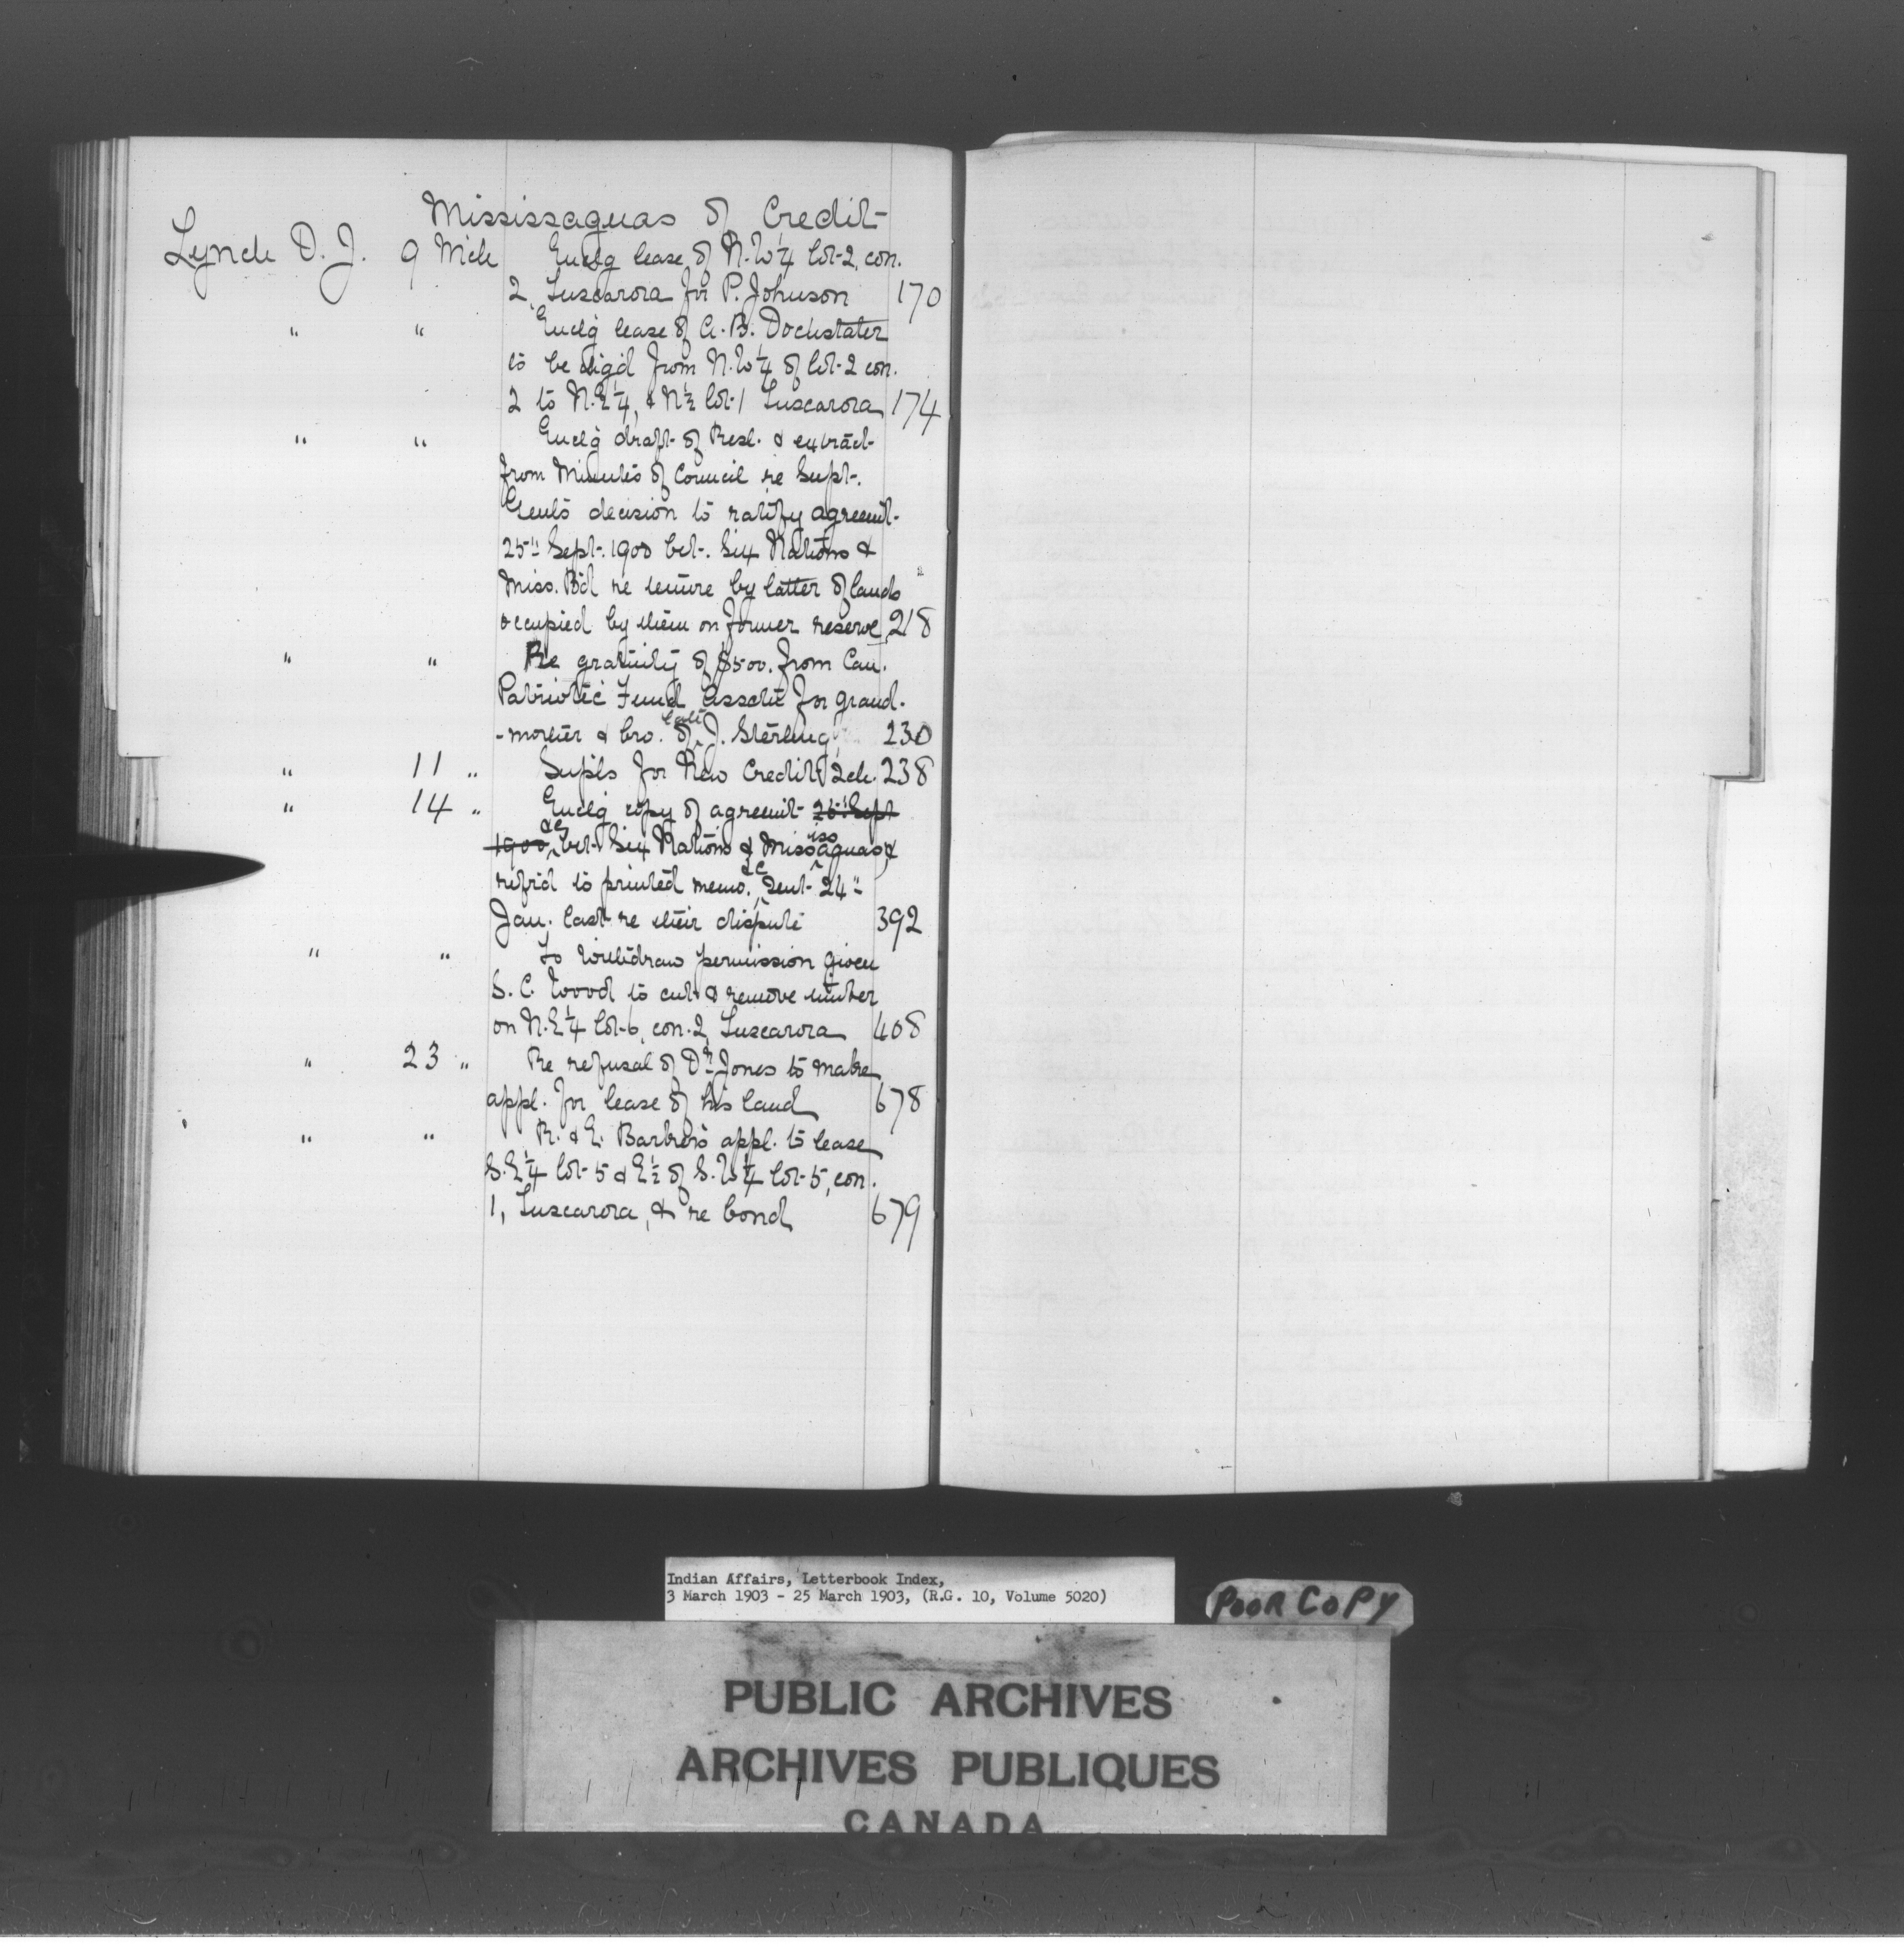 Mississaguas of Credit
Lynch D. J. 9 Mch Enclg lease of N. W ¼ lot 2, con.
2, Tuscarora for P. Johnson 170
" " Enclg lease of A. B. Dockstater
to be from N. W ¼ of lot 2 con.
2 to N. E ¼, & N ½ lot 1 Tuscarora 174
" " Enclg draft of Resl. & extract
from Minutes of Council re Supt.
Genl's decision to ratify agreemt.
25" Sept. 1900 bet. Six Nations &
Miss. B'd re tenure by latter of lands
occupied by them on former reserve 218
" " Re gratuity of $500. from Can.
Patriotic Fund Assctn for grand-
-mother & bro. of late J. Sterling 230
" 11 " Supls for New Credit Sch. 238
" 14 " Enclg copy of agreemt 25" Sept
1900, &c bet. Six Nations & Mississaguas &
refrd to printed memo. &c, sent 24"
Jan. last re their dispute 392
" " To withdraw permission given
S. C. Wood to cut & remove timber
on N. E ¼ lot 6, con. 2, Tuscarora 408
" 23 " Re refusal of Dr. Jones to make
appl. for lease of his land 678
" " R. & E. Barber's appl. to lease
S. E ¼ lot 5 & E ½ of S. W ¼ lot 5, con.
1, Tuscarora, & re bond 679
Indian Affairs, Letterbook Index,
3 March 1903 - 25 March 1903, (R.G. 10, Volume 5020)
POOR COPY
PUBLIC ARCHIVES
ARCHIVES PUBLIQUES
CANADA